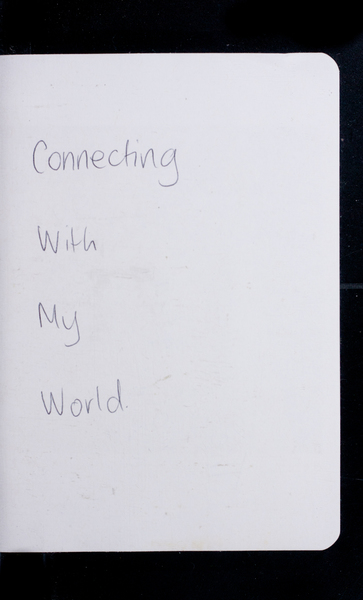 Connecting
With
My
World.